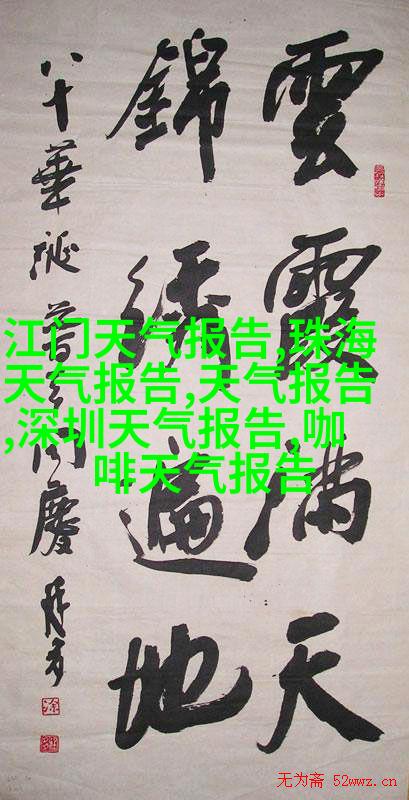 雲霞滿天
錦繡遍地
江门天气报告,珠海
天气报告,天气报告
,深圳天气报告,咖
啡天气报告
无为斋 52wwz.cn